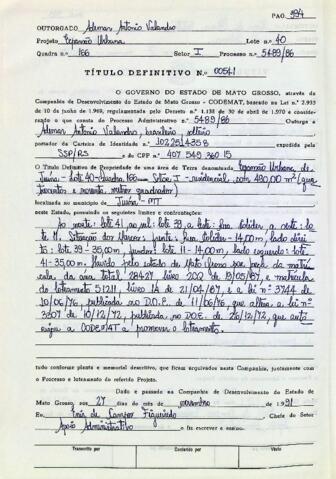 PAG. 394
OUTORGADO Ademar Antônio Valandro
Projeto Expansão Urbana Lote n.º 40
Quadra n.º 166 Setor I Processo n.º 5489/86
TÍTULO DEFINITIVO N.º 00541
O GOVERNO DO ESTADO DE MATO GROSSO, através da
Companhia de Desenvolvimento do Estado de Mato Grosso - CODEMAT, baseado na Lei n.º 2.933
de 10 de junho de 1969, regulamentada pelo Decreto n.º 1.138 de 30 de abril de 1970 e considerando
o que consta do Processo Administrativo n.º 5489/86 Outorga a
Ademar Antônio Valandro, brasileiro, solteiro
portador da Carteira de Identidade n.º 1022514358 expedida pela
SSP/RS e do CPF n.º 407 548 360 15
O Título Definitivo de Propriedade de uma área de Terra denominada Expansão Urbana de
Juína - lote 40 - Quadra 166 - Setor I - residencial com 490,00 m² (qua
trocentos e noventa metros quadrados)
localizada no município de Juína - MT
neste Estado, possuindo os seguintes limites e confrontações:
ao norte: lote 41, ao sul: lote 39, a leste: Rua a oeste: lo
te 11. Situação dos Marcos: frente: Rua 14,00m, lado direi
to: lote 39 - 35,00m, fundos: lote 11 - 14,00m, lado esquerdo: lote
41 - 35,00m Havido pelo Estado de Mato Grosso por força da matrí
cula da área total 28427 livro 202 de 13/05/87, e matrícula
do loteamento 51211 livro 1A de 21/04/87, e a lei nº 3744 de
10/06/76, publicada no D.O.E. de 11/06/76, que altera a lei nº
3307 de 18/12/72, publicada no D.O.E. de 26/12/72, que auto
riza a CODEMAT a promover o loteamento.
tudo conforme planta e memorial descritivo, que ficam arquivados nesta Companhia, juntamente com
o Processo e loteamento do referido Projeto.
Dado e passado na Companhia de Desenvolvimento do Estado de
Mato Grosso, aos 27 dias do mês de novembro de 1991
Eu, Enir de Campos Figueiredo Chefe do Setor
Apoio Administrativo o fiz escrever e assino.
Transcrito por Conferido por Visto